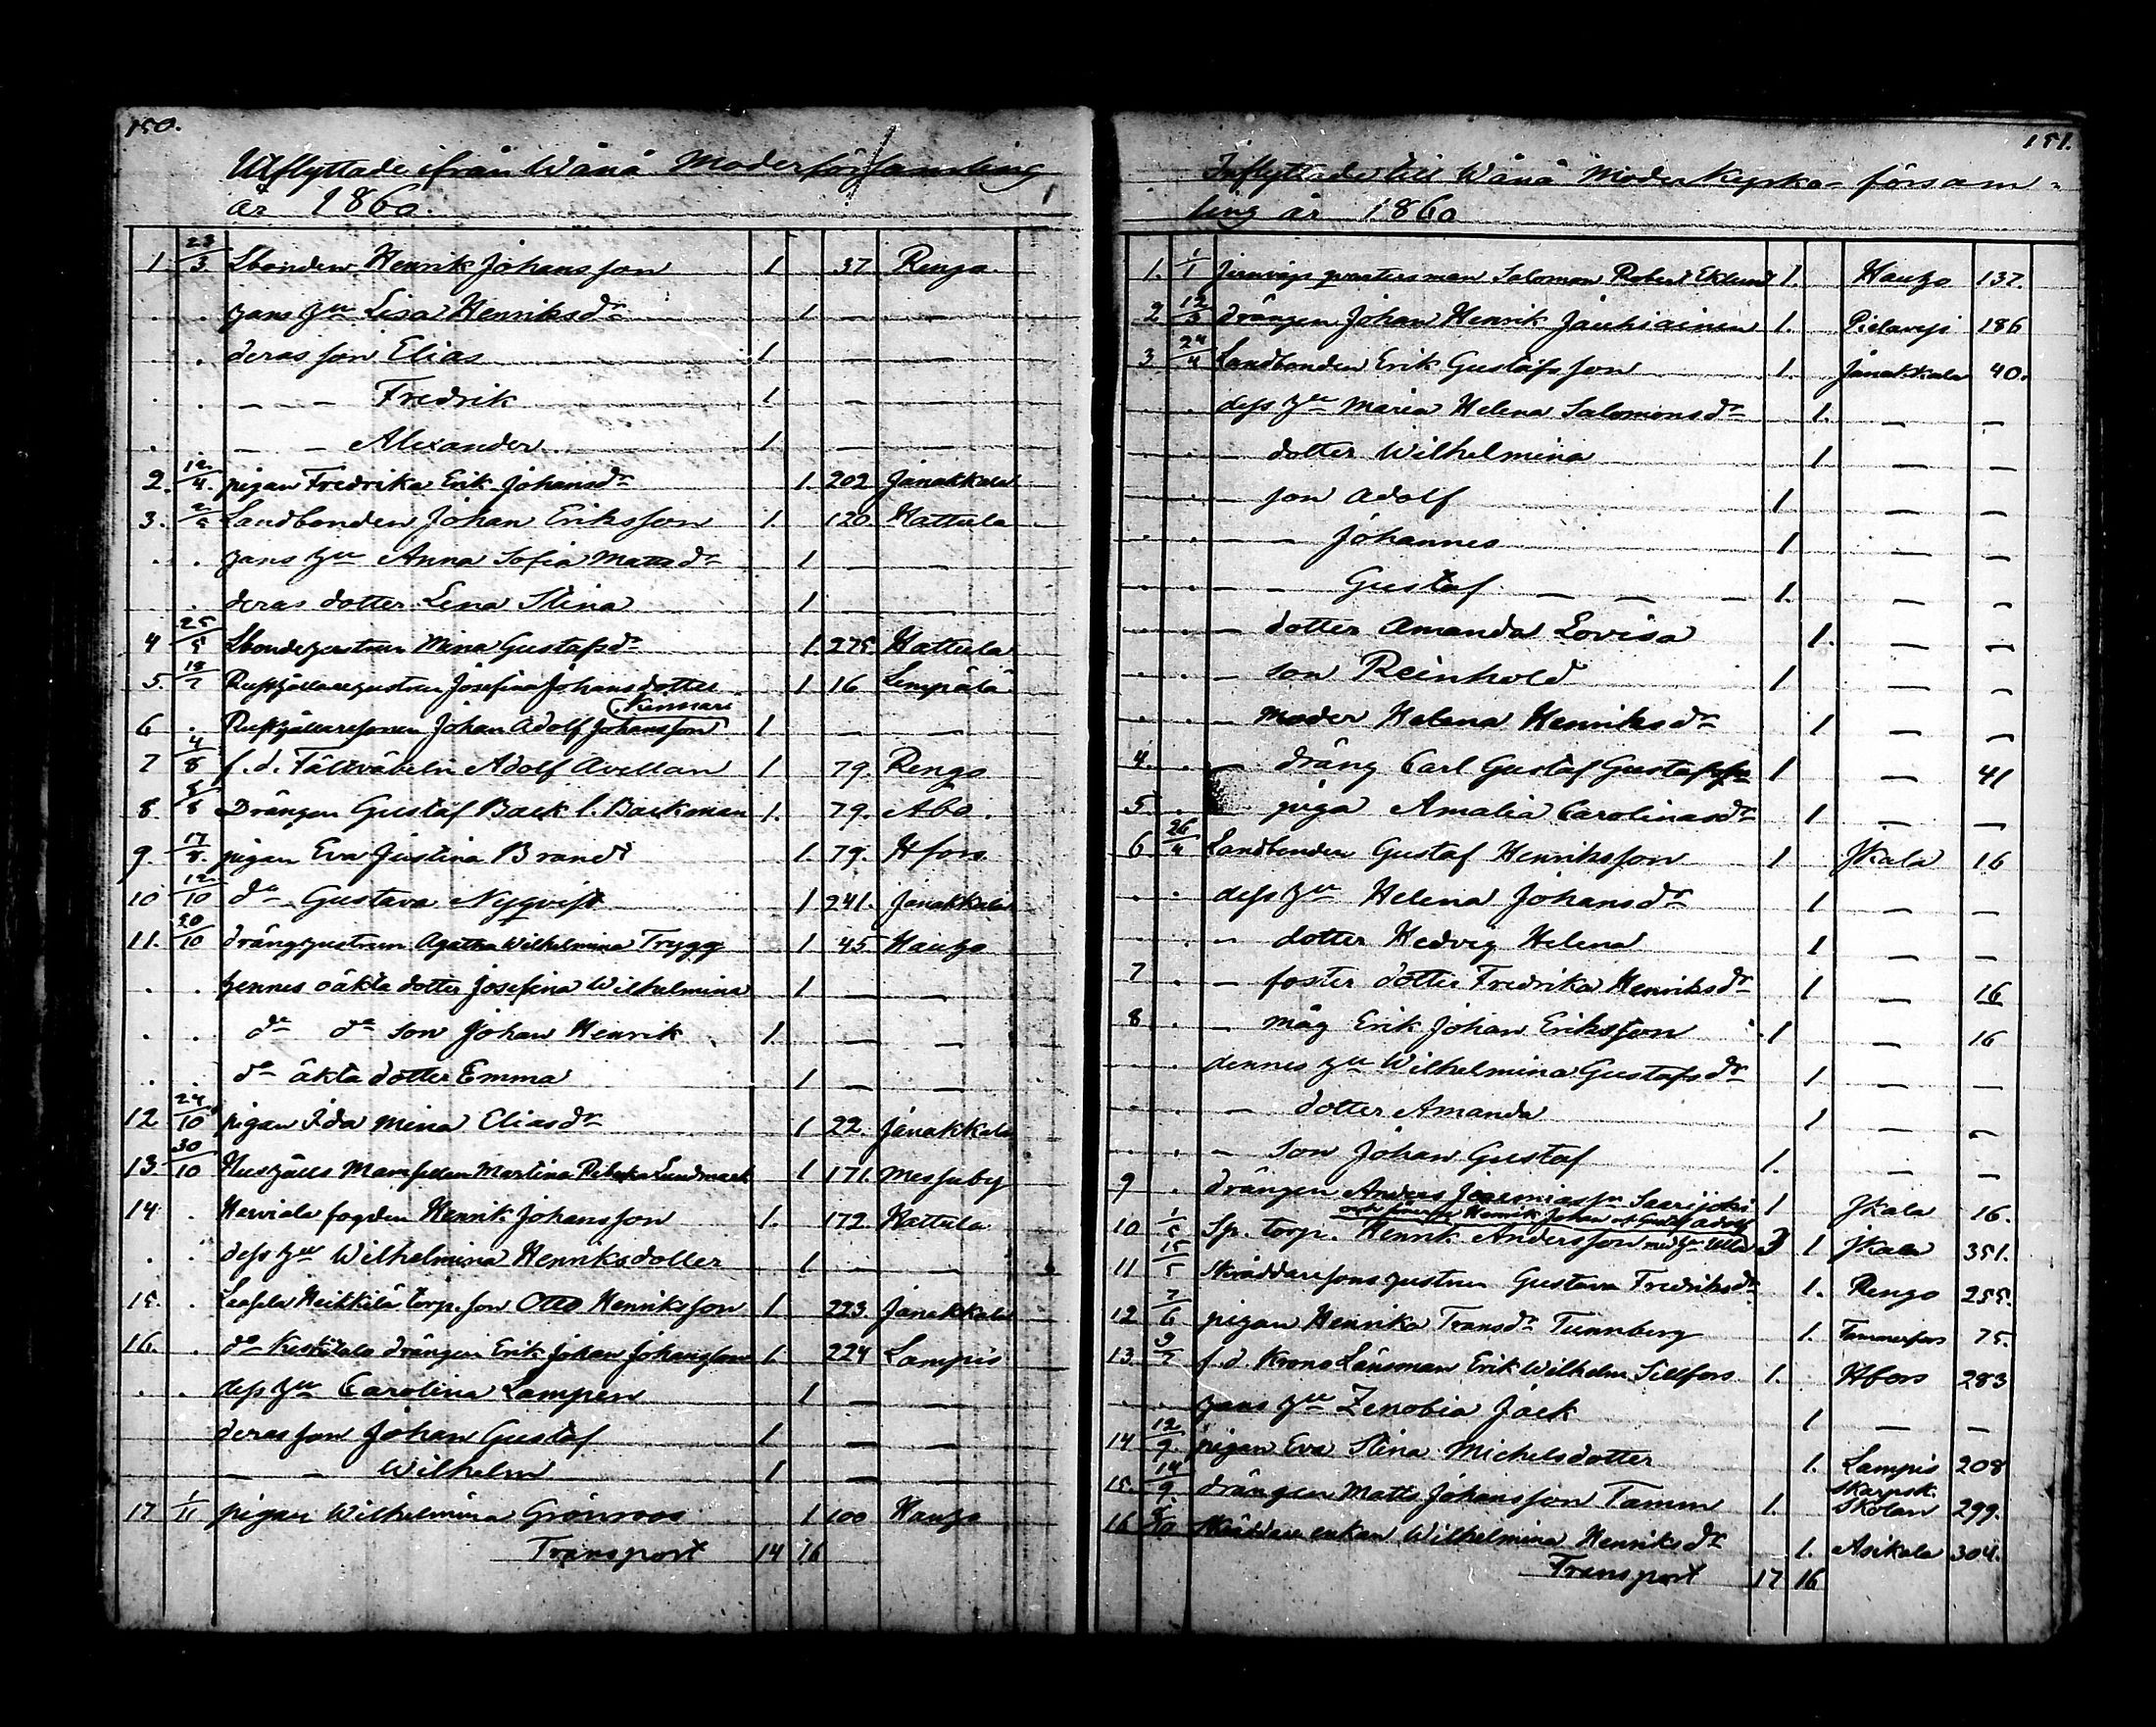 150.
Utflyttade ifrån Wånå Moderförsamling
år 1860.
1 23/3 Lbonden Henrik Johansson 1 37 Rengo
. . hans h:u Lisa Henriksd:r 1 — —
. deras son Elias 1 — —
. . — — Fredrik 1 — —
. — — Alexander 1 — —
2. 12/4. pigan Fredrika Erik Johansd:r 1. 202 Janakkala
3. Landbonden Johan Eriksson 1. 120. Hattula
. . hans h:u Anna Sofia Mattsd:r 1 — —
. deras dotter Lena Stina 1 — —
4 25/5 Lbondehustrun Mina Gustafsd:r 1. 275. Hattula
5. Josefina Johansdotter 1 16 Lempälä
6 . Johan Adolf Johansson 1 — —
7 4/8 f.d. Fältväbeln Adolf Avellan 1. 79. Rengo
8 8/8 Drängen Gustaf Back l. Backman 1. 79. Abo.
9. 17/8. pigan Eva Justina Brandt 1. 79. Hfors
10 12/10 d:o Gustava Nyqvist 1 241. Janakkala
11. 20/10 dränghustrun Agatha Wilhelmina Trygg 1 45 Hauho
. . hennes oäkta dotter Josefina Wilhelmina 1 — —
. . d:o d:o son Johan Henrik 1. — —
. . d:o äkta dotter Emma 1 — —
12 24/10 pigan Ida Mina Eliasd:r 1 22. Janakkala
13. 30/10 Mamsellen Martina Lundmark 1 171. Messuby
14 . Herviala fogden Henrik Johansson 1. 172 Hattula
. . dess h:u Wilhelmina Henriksdotter 1 — —
15. . Heikkilä torp. son Otto Henriksson 1. 223. Janakkala
16. . d:o drängen Erik Johan Johansson 1. 224 Lampis
. . dess h:u Carolina Lampen 1 — —
deras son Johan Gustaf 1 — —
— — Wilhelm 1 —
17 1/11 pigan Wilhelmina Grönroos 1 100 Hauho
Transport 14 16
151.
Inflyttade till Wånå Moder Kyrko- försam-
ling år 1860
1. 1/1 Salomon Robert Eklund 1. Hauho 137.
2 12/3 drängen Johan Henrik Jauhiainen 1. Pielavesi 186
3 24/4 Landbonden Erik Gustafsson 1. Janakkala 40.
. dess h:u Maria Helena Salomonsd:r 1. — —
— dotter Wilhelmina 1 — —
. . — son Adolf 1 — —
. . — — Johannes 1 — —
. . — — Gustaf — — — 1. — —
. . — dotter Amanda Lovisa 1. — —
. . — son Reinhold 1 — —
. . — moder Helena Henriksd:r 1 — —
4. . — dräng Carl Gustaf Gustafsson 1 — 41
5. . piga Amalia Carolinasd:r 1 — —
6 26/4 Landbonden Gustaf Henriksson 1 Jkala 16
. . dess h:u Helena Johansd:r 1 — —
. . — dotter Hedvig Helena 1 —
7 . — foster dotter Fredrika Henriksd:r 1 — 16
8 . — måg Erik Johan Eriksson 1 — 16
. dennes h:u Wilhelmina Gustafsd:r 1 — —
. . — dotter Amanda 1 — —
. . — son Johan Gustaf 1. — —
9 . drängen Anders Saarijoki 1 Jkala 16.
Henrik Johan o. Gustaf Adolf
10 1/5 Sp. torp. Henrik Andersson med h:u Ulla 3 1 Jkala 351.
11 15/5 Skräddaresons hustrun Gustava Fredriksd:r 1. Rengo 255.
12 7/6 pigan Henrika Fransd:r Tunnberg 1. Tammerfors 75.
13. 9/7 f.d. Krono Länsman Erik Wilhelm Sillfors 1. Hfors 283
. . hans h:u Zenobia Jack 1 — —
14 12/9. pigan Eva Stina Michelsdotter 1. Lampis 208
15. 14/9 drängen Matts Johansson Tamm 1. Skarpsk. Skolan 299.
16 enkan Wilhelmina Henriksd:r 1. Asikala 304.
Transport 17 16